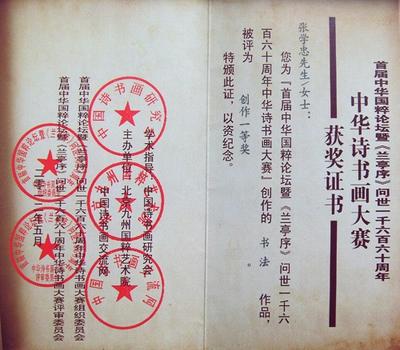 首届中华国粹论坛暨《兰亭序》问世一千六百六十周年
中华诗书画大赛
获奖证书
张学忠先生/女士：
您为“首届中华国粹论坛暨《兰亭序》问世一千六
百六十周年中华诗书画大赛”创作的 书法 作品，
被评为 创作一等奖
特颁此证，以资纪念。
学术指导：中国诗书画研究会
主办单位：北京九州国粹艺术院
中国诗书画交流网
首届中华国粹论坛暨《兰亭序》问世一千六百六十周年中华诗书画大赛组织委员会
首届中华国粹论坛暨《兰亭序》问世一千六百六十周年中华诗书画大赛评审委员会
年五月
中国诗书画研究会